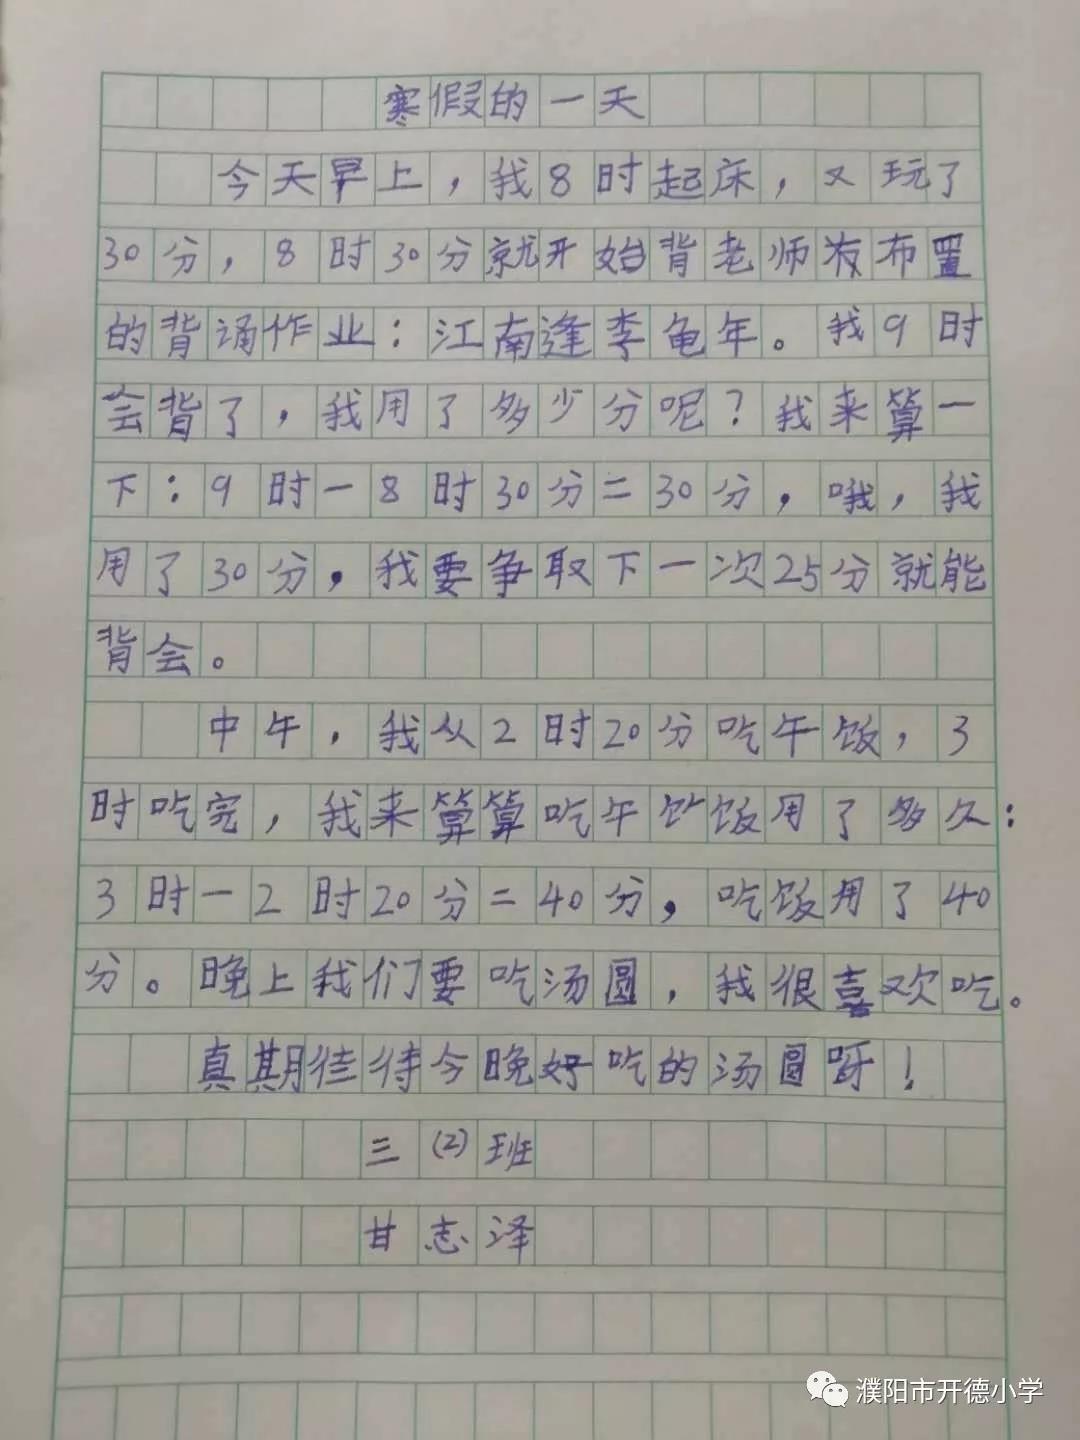 寒假的一天
今天早上，我8时起床，又玩了
30分，8时30分就开始背老师发布置
的背诵作业：江南逢李龟年。我9时
会背了，我用了多少分呢？我来算一
下：9时－8时30分＝30分，哦，我
用了30分，我要争取下一次25分就能
背会。
中午，我从2时20分吃午饭，3
时吃完，我来算算吃午饣饭用了多久：
3时－2时20分＝40分，吃饭用了40
分。晚上我们要吃汤圆，我很喜欢吃。
真期待待今晚好吃的汤圆呀！
三(2)班
甘志泽
濮阳市开德小学